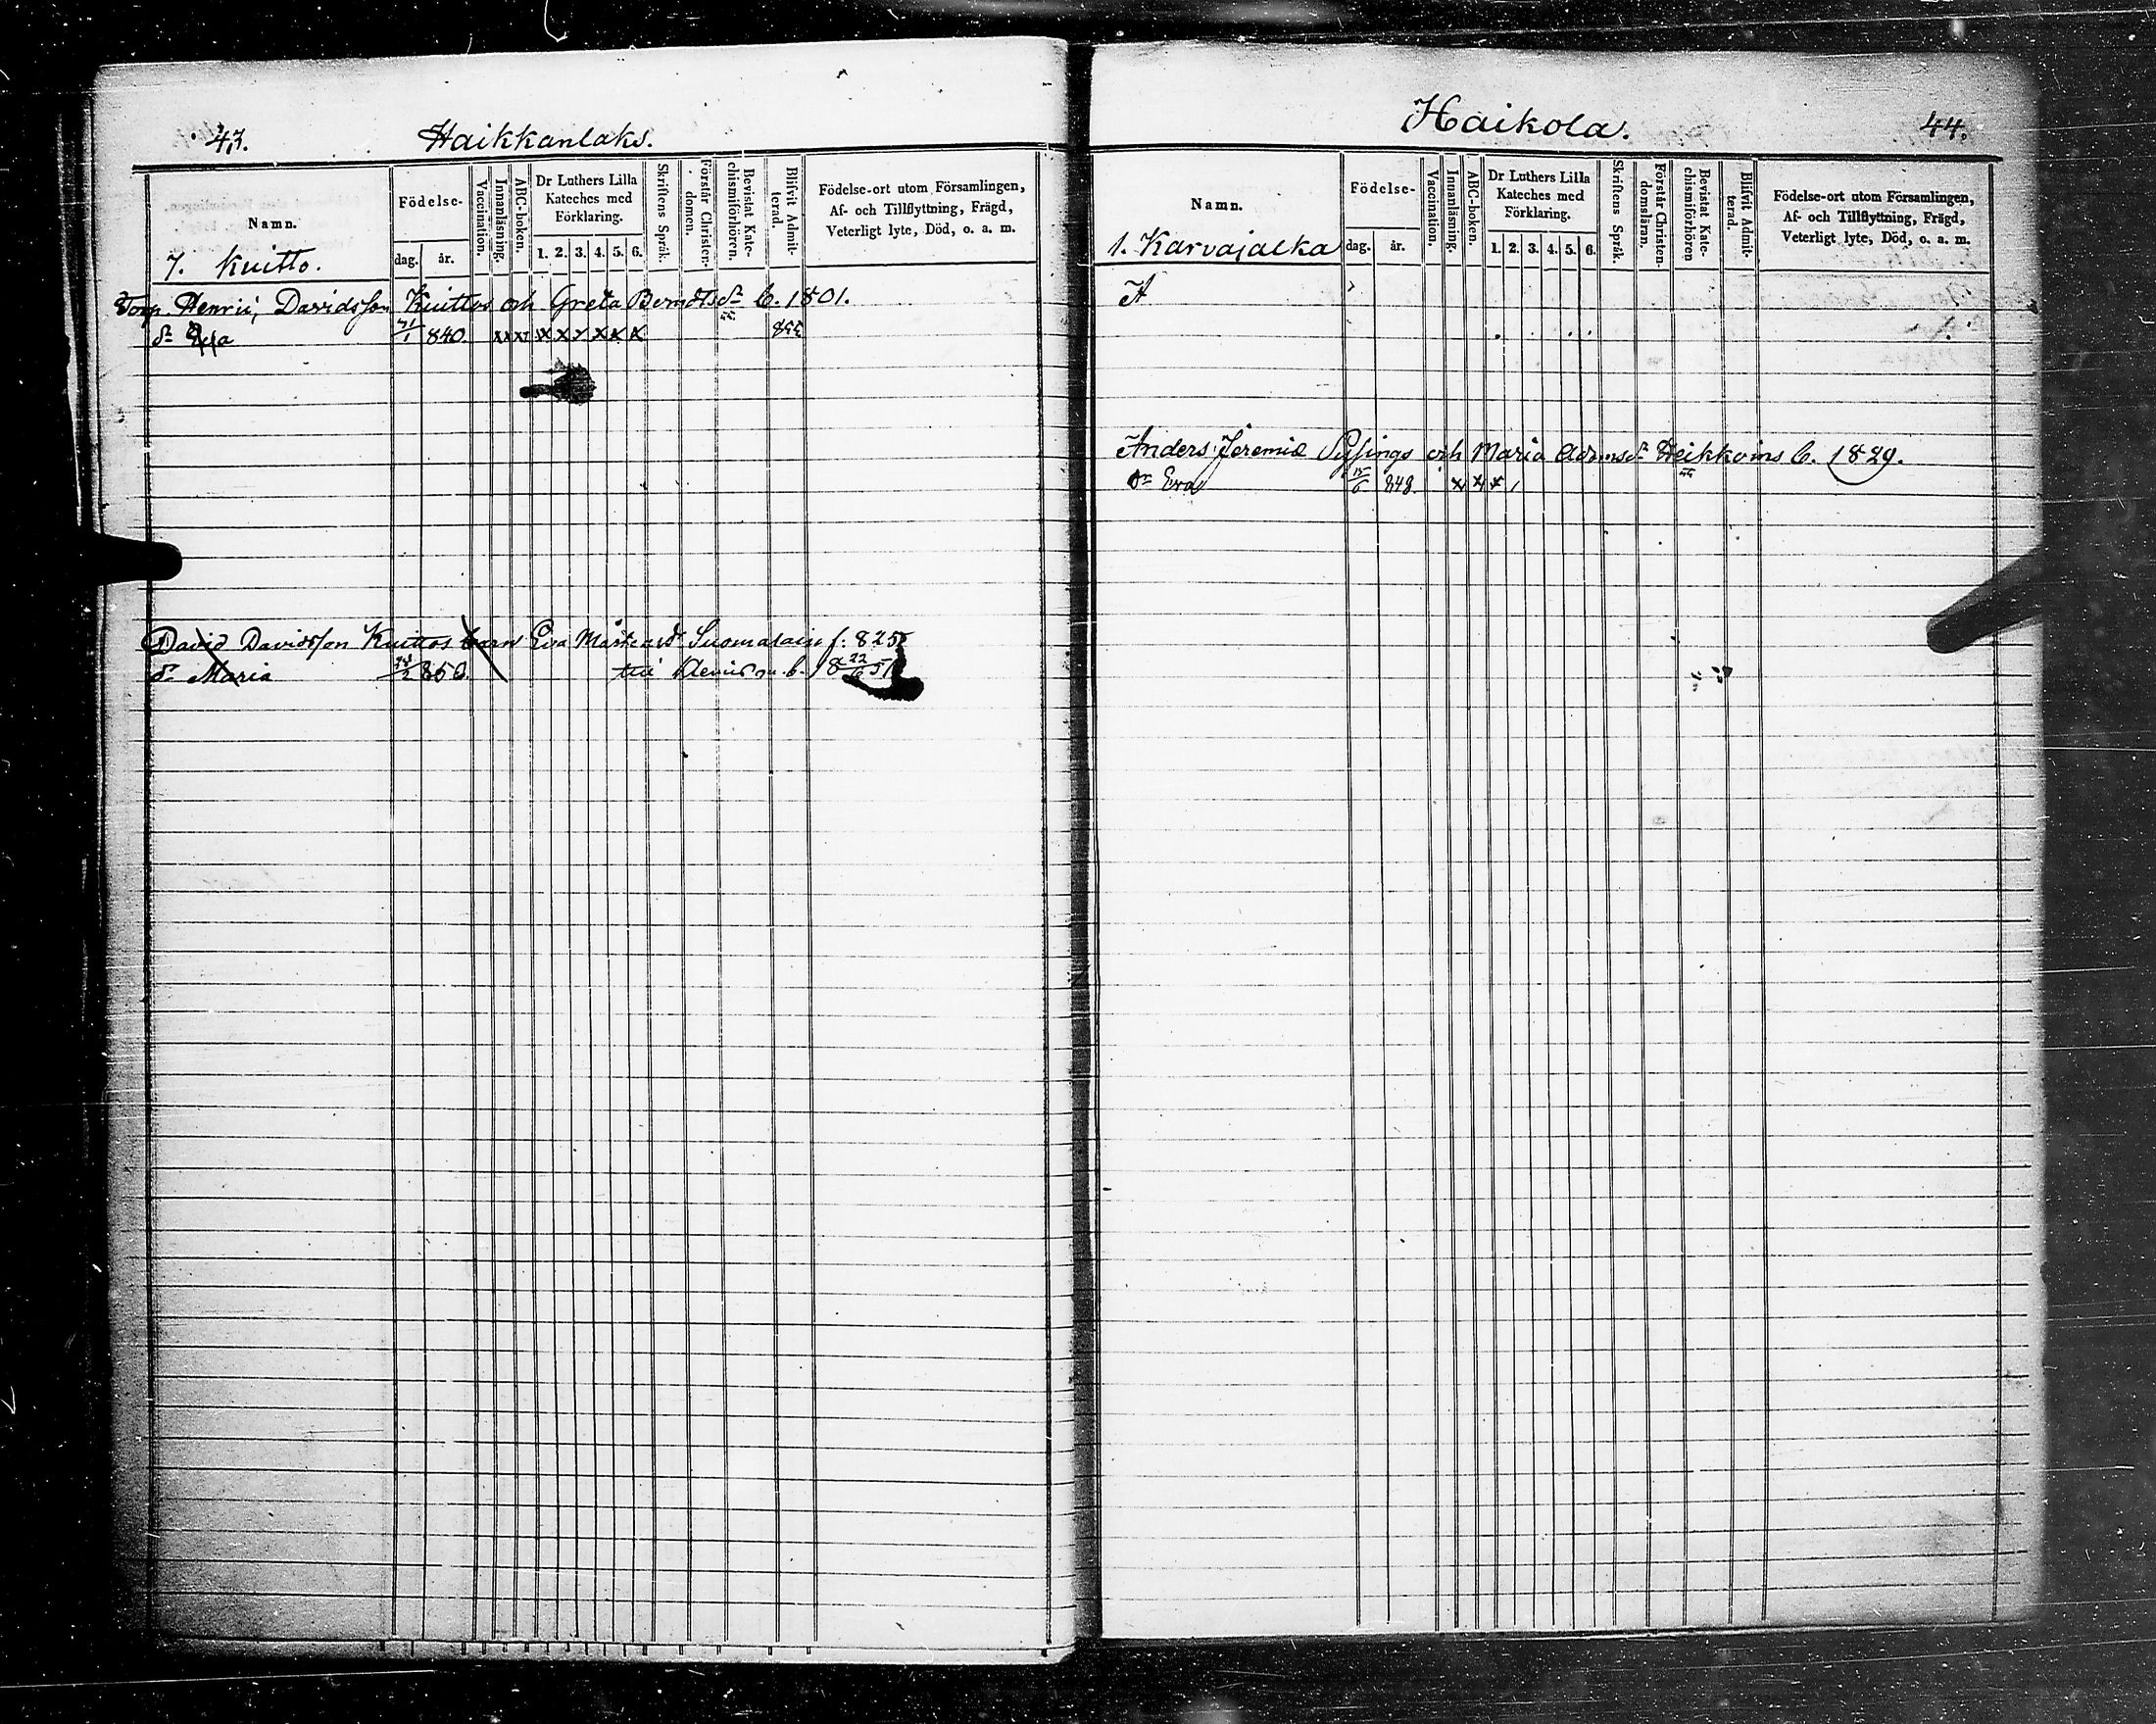 43.
Haikkanlaks.
Namn.
Födelse-
dag.
år.
Vaccination.
Innanläsning.
ABC-boken.
Dr Luthers Lilla
Kateches med
Förklaring.
1. 2. 3. 4. 5. 6.
Skriftens Språk.
Förstår Christen-
domen.
Bevistat Kate-
chismiförhören.
Blifvit Admit-
terad.
Födelse-ort utom Församlingen,
Af- och Tillflyttning, Frägd,
Veterligt lyte, Död, o. a. m.
7. Kuitto.
Torp. Henric Davidsson Kuittos och Greta Berndtsdr b. 1801.
dr Eva 840. x x x x x x
David Davidsson Kuittos barn Eva Suomalain f. 825
dr Maria 850. b. 22/6 51
Haikola.
44.
Namn.
Födelse-
dag.
år.
Vaccination.
Innanläsning.
ABC-boken.
Dr Luthers Lilla
Kateches med
Förklaring.
1. 2. 3. 4. 5. 6.
Skriftens Språk.
Förstår Christen-
domsläran.
Bevistat Kate-
chismiförhören
Blifvit Admit-
terad.
Födelse-ort utom Församlingen,
Af- och Tillflyttning, Frägd,
Veterligt lyte, Död, o. a. m.
1. Karvajalka
A
Anders Jeremiæ Pysings och Maria Adamsdr Heikkoins b. 1829.
dr Eva 848. x x x